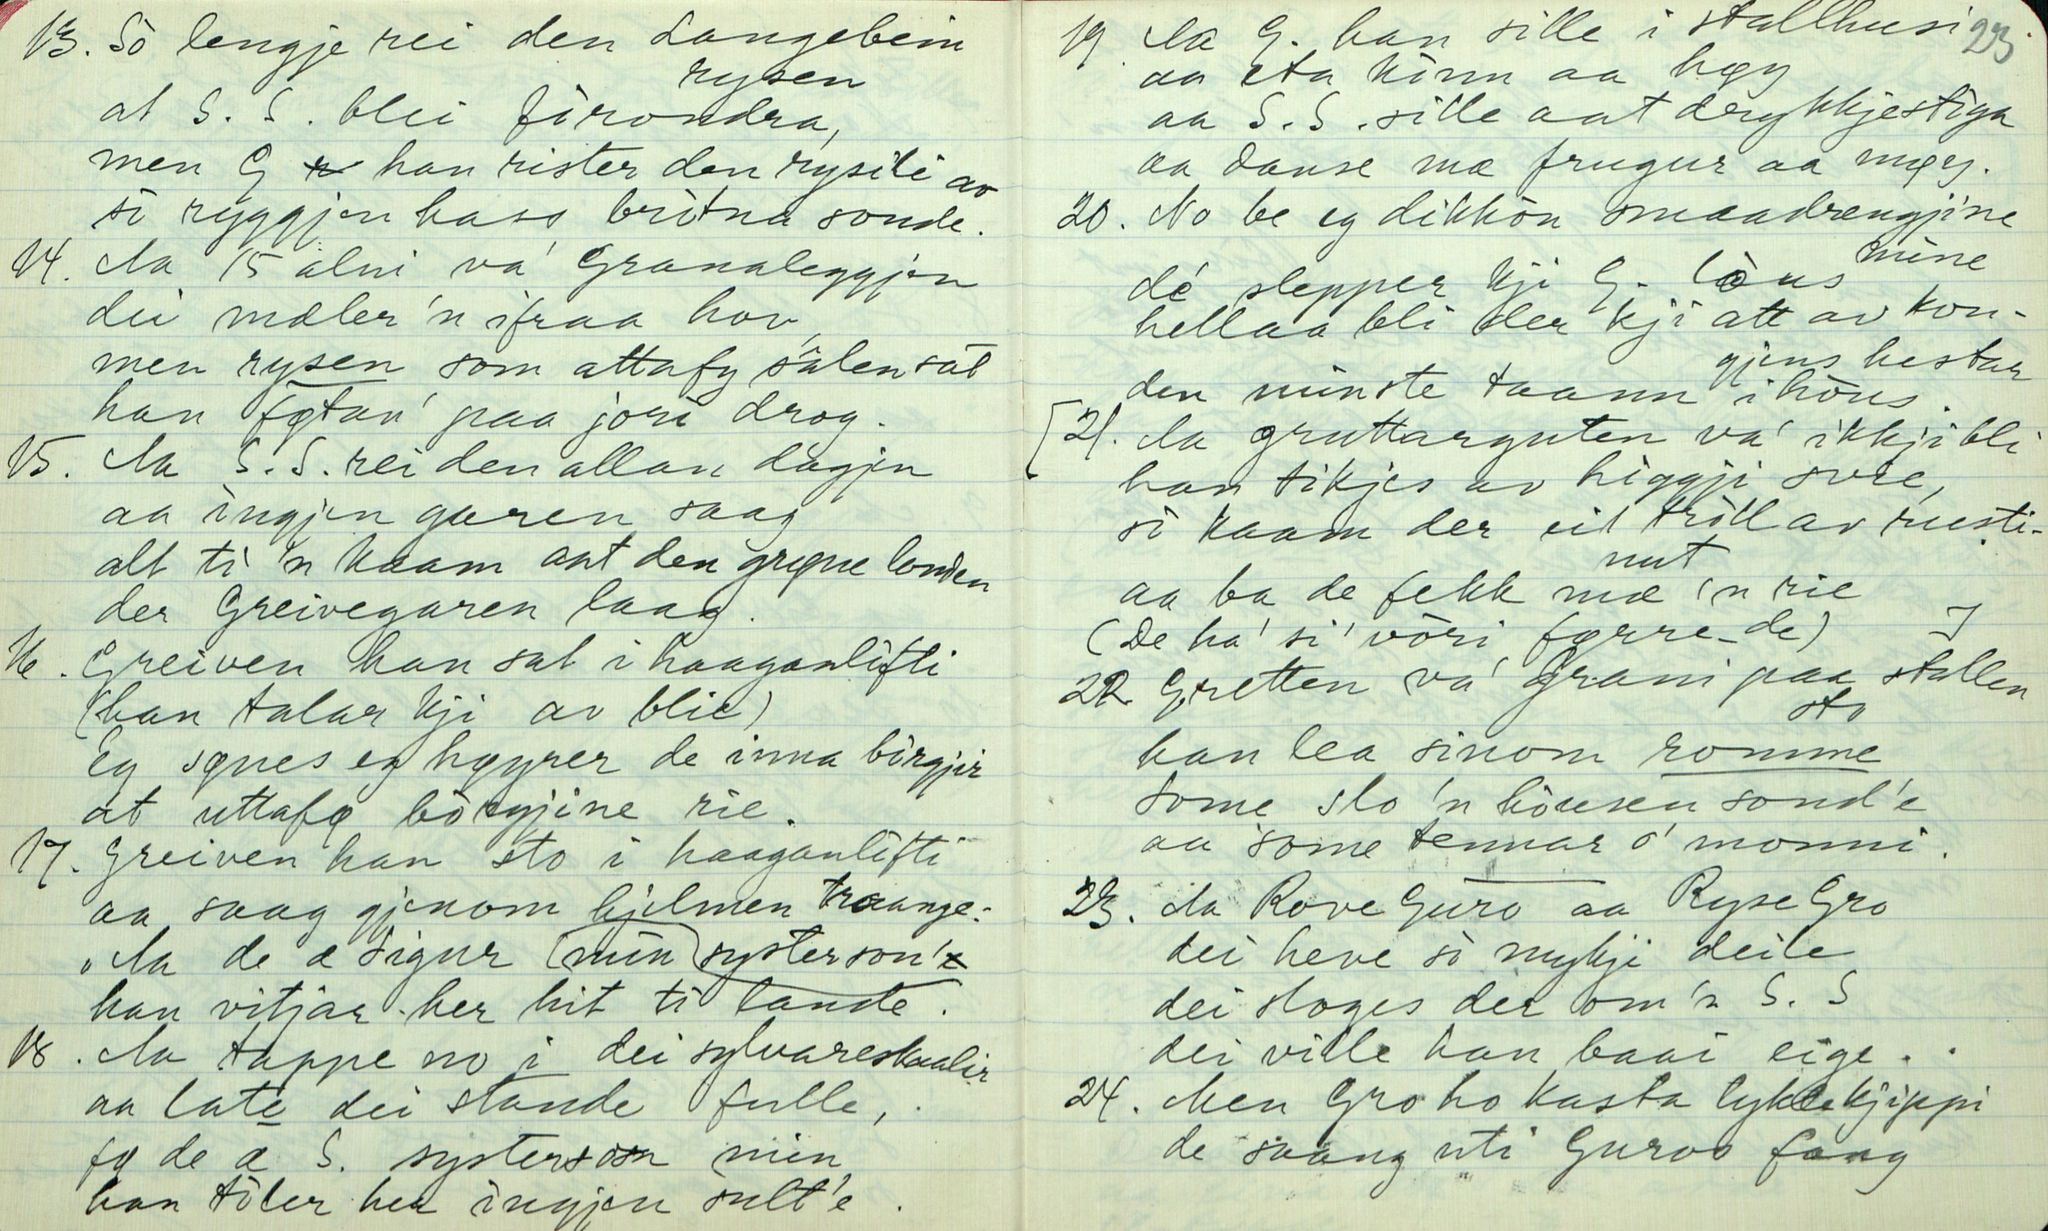 13. Sò lengje rei den Langebein
rysen
at S. S. blei fòrondra,
men G han rister den rysili av
sì ryggjen hass britna sonde.
14. Aa 15 alni va' Granaleggjen
dei mæler 'n ifraa hov,
men rysen som attafy sàlen sat
han føtan' paa jori drog.
15. Aa S. S. rei den allan dagjen
aa ingjen garen saag
alt ti 'n kaam aat den grøne londen
der Greivegaren laag.
16. Greiven han sat i haaganlòfti
(han talar kji av blie)
Eg synes eg høyrer de inna bòrgjir
at uttafø bòrgjine rie.
17. Greiven han sto i haaganlòfti
aa saag gjenom hjelmen traange:
"Aa de æ Sigur (min) systerson'
han vitjar her hit ti lande.
18. Aa tappe no i dei sylvareskaalir
aa late dei stande fulle,
fø de æ S. systerson min
han tòler her ingjen sult'e.
23
19 Aa G. han sille i stallhusi.
aa eta kònn aa høy
aa S. S. sille aat drykkjestiga
aa danse mæ frugur aa møy.
20. No be eg dikkòn smaadrengjine
mine
dé slepper kji G. làus
hellaa bli der kji att av kon-
gjens hestar
den minste taann i hòus.
[21. Aa gruttarguten va' ikkji bli
han tikjes av higgji svie,
sì kaam der eit tròll av rusti-
nut
aa ba de fekk mæ 'n rie
(De ha' si' vòri førre-de) ]
22 Gretten va' Grani paa stallen
sto
han lea sinom romme
some slo 'n hòusen sond'e
aa some tennar o' monni.
23. Aa Rove Guro aa Ryse Gro
dei heve sò mykji deile
dei sloges der om 'n S. S
dei ville han baai eige.
24. Men Gro ho kasta lykkekjippi
de spraang uti Guros faang